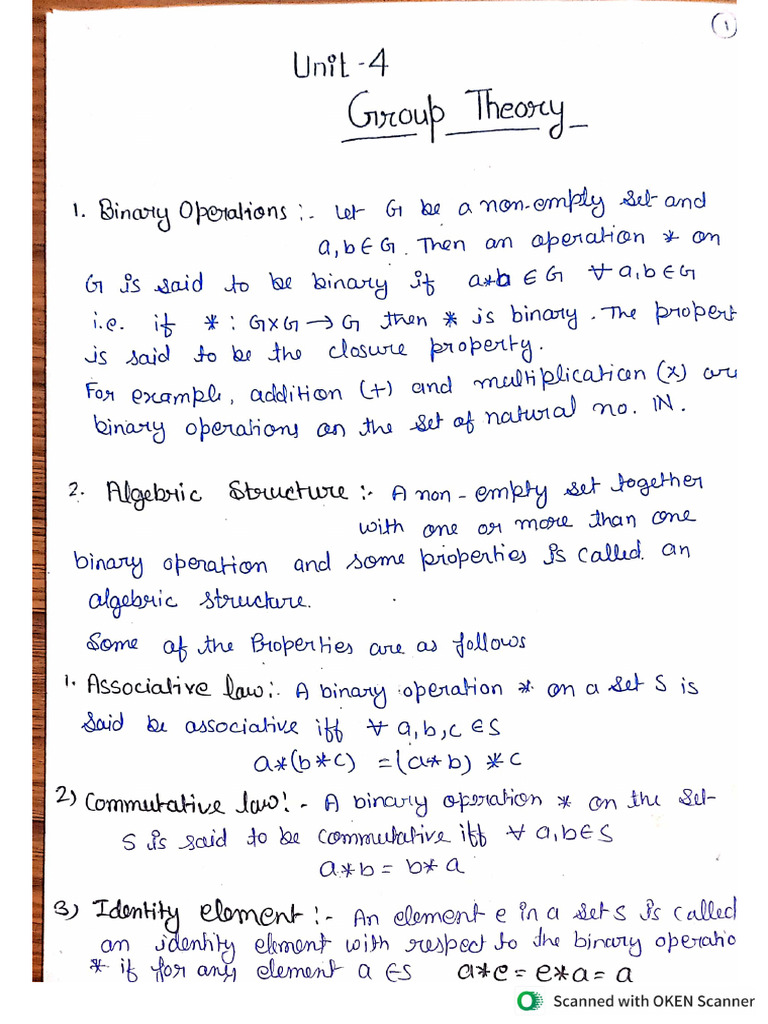 1
Unit-4
Group Theory
1. Binary Operations :- Let G be a non-empty set and
a, b ∈ G. Then an operation * on
G is said to be binary if a*b ∈ G ∀ a, b ∈ G
i.e. if * : G×G → G then * is binary. The propert
is said to be the closure property.
For example, addition (+) and multiplication (×) are
binary operations on the set of natural no. IN.
2. Algebric Structure :- A non-empty set together
with one or more than one
binary operation and some properties is called an
algebric structure.
Some of the Properties are as follows
1. Associative law :- A binary operation * on a set S is
said be associative iff ∀ a, b, c ∈ S
a*(b*c) = (a*b) *c
2) Commutative law :- A binary operation * on the set
S is said to be commutative iff ∀ a, b ∈ S
a*b = b*a
3) Identity element :- An element e in a set S is called
an identity element with respect to the binary operatio
* if for any element a ∈ S a*e = e*a = a
Scanned with OKEN Scanner